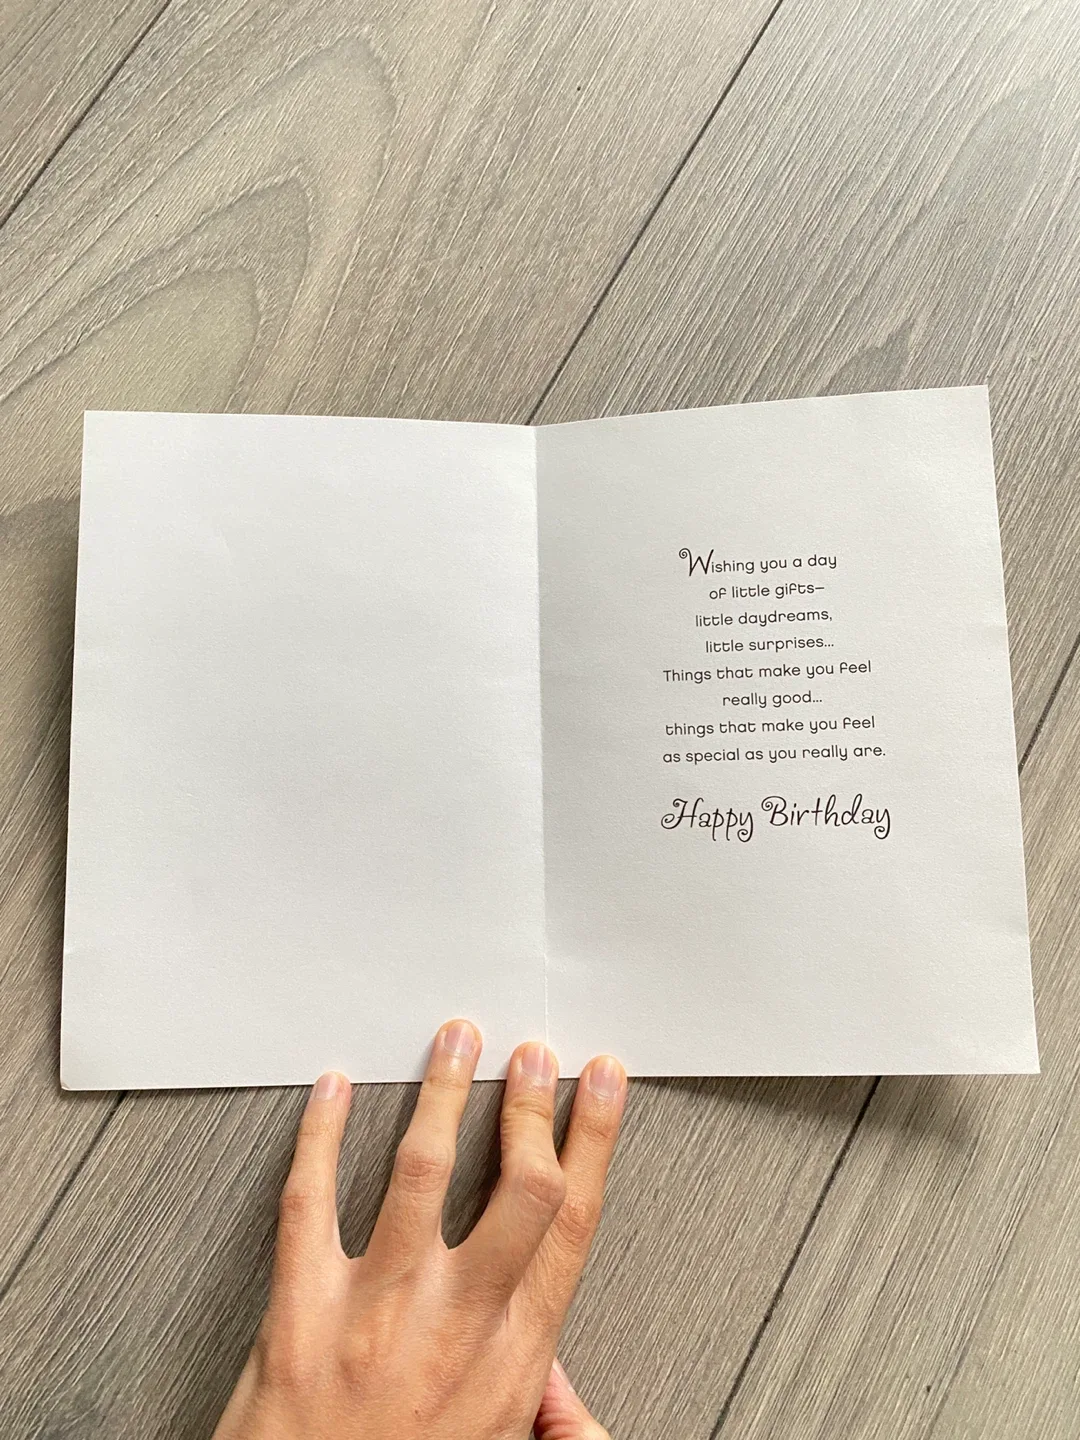 Wishing you a day
of little gifts–
little daydreams,
little surprises...
Things that make you feel
really good...
things that make you feel
as special as you really are.
Happy Birthday